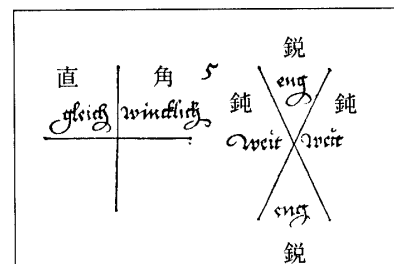 直 角
gleich wincklich
5
鋭
eng
鈍 鈍
weit weit
eng
鋭